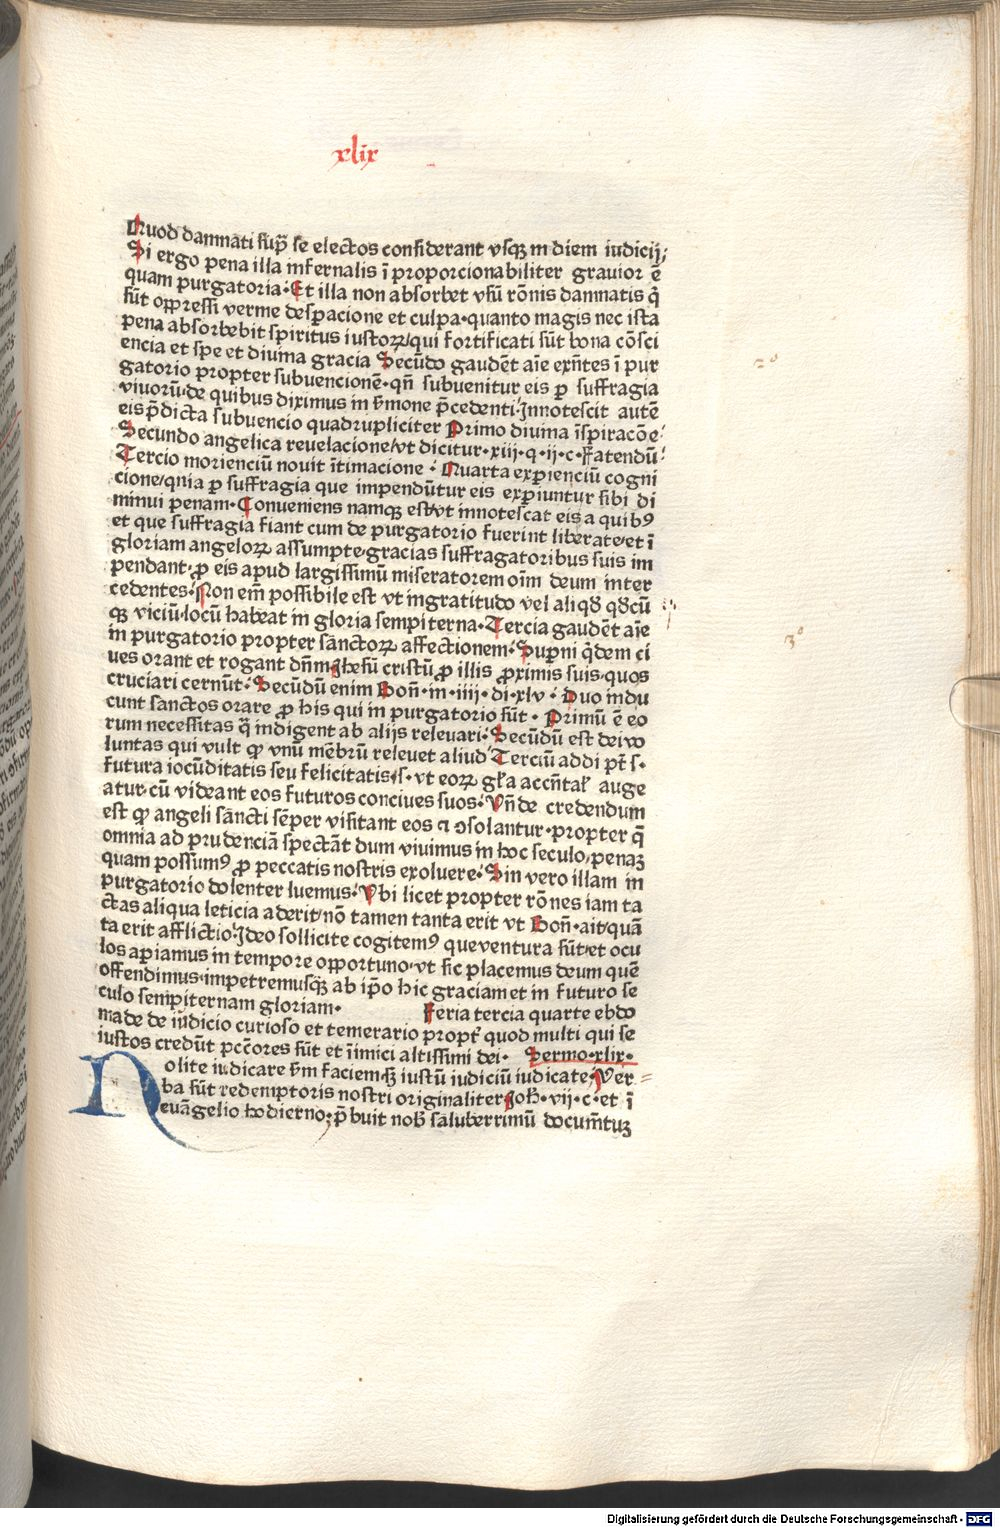 xlix
Quod damnati sup̄ se electos considerant vsqꝫ in diem iudicij;
Si ergo pena illa infernalis ī proporcionabiliter grauior ē
quam purgatoria. Et illa non absorbet vsū rōnis damnatis q̄
sūt oppressi verme desꝑacione et culpa. quanto magis nec ista
pena absorbebit spiritus iustoꝝ/qui fortificati sūt bona cōsci
encia et spe et diuina gracia Secūdo gaudēt aīe exn̄tes ī pur
gatorio propter subuencionē. qn̄ subuenitur eis ꝑ suffragia
viuorū/de quibus diximus in s̄mone p̄cedenti. Innotescit autē
eis p̄dicta subuencio quadrupliciter Primo diuina īspiracōe.
Secundo angelica reuelacione/vt dicitur. xiij. q. ij. c. Fatendū.
Tercio morienciū nouit ītimacione. Quarta exꝑienciū cogni
cione/qnia ꝑ suffragia que impendūtur eis exꝑiuntur sibi di
minui penam. Conueniens namqꝫ est/vt innotescat eis a quibꝰ
et que suffragia fiant cum de purgatorio fuerint liberate/et ī
gloriam angeloꝝ assumpte/gracias suffragatoribus suis im
pendant. ꝓ eis apud largissimū miseratorem oīm deum inter
cedentes. Non em̄ possibile est vt ingratitudo vel aliqd̄ qd̄cū
qꝫ viciū. locū habeat in gloria sempiterna. Tercia gaudēt aīe
in purgatorio propter sānctoꝝ affectionem. Suꝑni q̄dem ci
ues orant et rogant dn̄m Ihesū cristū ꝓ illis ꝓximis suis. quos
cruciari cernūt. Secūdū enim Bon̄. in. iiij. di. xlv. Duo indu
cunt sanctos orare ꝓ his qui in purgatorio sūt. Primū ē eo
rum necessitas q̄ indigent ab alijs releuari. Secūdū est dei vo
luntas qui vult ꝙ vnū mēbrū releuet aliud Terciū addi pt̄ s.
futura iocūditatis seu felicitatis. s. vt eoꝝ gl̄a accn̄tal̄ auge
atur. cū videant eos futuros conciues suos. Vn̄de credendum
est ꝙ angeli sāncti sēper visitant eos ⁊ ↄsolantur. propter q̄
omnia ad prudenciā spectāt dum viuimus in hoc seculo/penaꝫ
quam possumꝰ ꝓ peccatis nostris exoluere. Sin vero illam in
purgatorio dolenter luemus. Vbi licet propter rōnes iam ta
ctas aliqua leticia aderit/nō tamen tanta erit vt Bon̄. ait/quā
ta erit afflictio. Ideo sollicite cogitemꝰ que ventura sūt/et ocu
los aꝑiamus in tempore opportuno. vt sic placemus deum quē
offendimus. impetremusqꝫ ab ip̄o hic graciam et in futuro se
culo sempiternam gloriam. Feria tercia quarte ebdo
made de iudicio curioso et temerario propt̄ quod multi qui se
iustos credūt pc̄cōres sūt et īimici altissimi dei. Sermo. xlix.
Nolite iudicare s̄m faciem. sꝫ iustū iudiciū iudicate. Ver=
ba sūt redemptoris nostri originaliter Joh̄. vij. c. et ī
euāgelio hodierno; p̄buit nob̄ saluberrimū docum̄tuꝫ
2º
3º
Digitalisierung gefördert durch die Deutsche Forschungsgemeinschaft - DFG